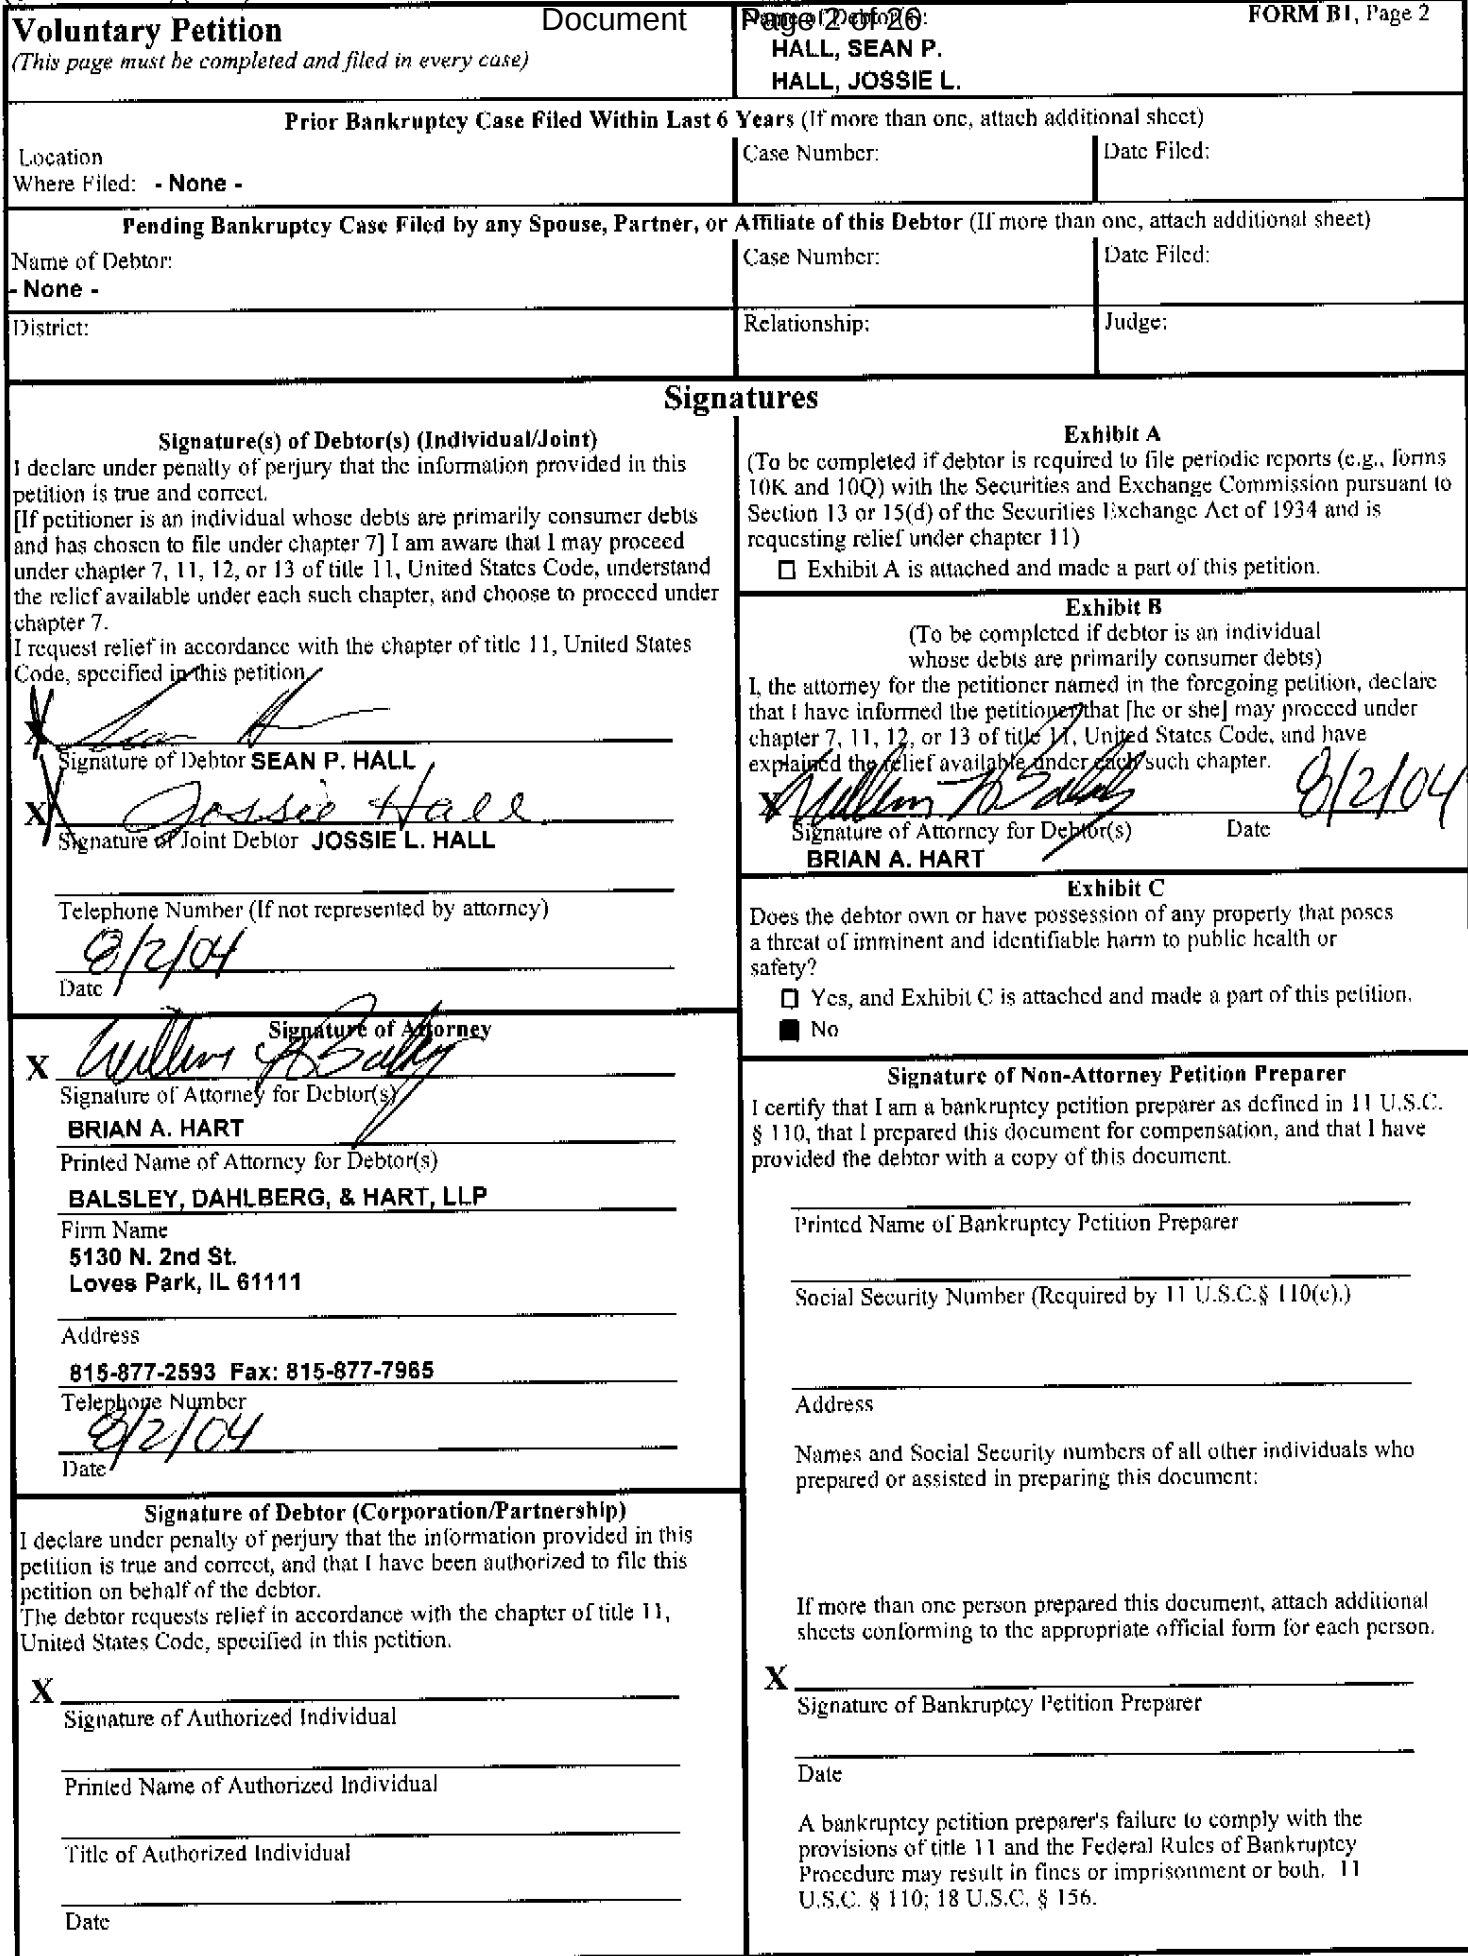 Document Page 2 of 26
Voluntary Petition
(This page must be completed and filed in every case)
Name of Debtor(s):
FORM B1, Page 2
HALL, SEAN P.
HALL, JOSSIE L.
Prior Bankruptcy Case Filed Within Last 6 Years (If more than one, attach additional sheet)
Location
Where Filed: - None -
Case Number:
Date Filed:
Pending Bankruptcy Case Filed by any Spouse, Partner, or Affiliate of this Debtor (If more than one, attach additional sheet)
Name of Debtor:
- None -
Case Number:
Date Filed:
District:
Relationship:
Judge:
Signatures
Signature(s) of Debtor(s) (Individual/Joint)
I declare under penalty of perjury that the information provided in this
petition is true and correct.
[If petitioner is an individual whose debts are primarily consumer debts
and has chosen to file under chapter 7] I am aware that I may proceed
under chapter 7, 11, 12, or 13 of title 11, United States Code, understand
the relief available under each such chapter, and choose to proceed under
chapter 7.
I request relief in accordance with the chapter of title 11, United States
Code, specified in this petition.
X
Signature of Debtor SEAN P. HALL
X Jossie Hall
Signature of Joint Debtor JOSSIE L. HALL
Telephone Number (If not represented by attorney)
8/2/04
Date
Signature of Attorney
X
Signature of Attorney for Debtor(s)
BRIAN A. HART
Printed Name of Attorney for Debtor(s)
BALSLEY, DAHLBERG, & HART, LLP
Firm Name
5130 N. 2nd St.
Loves Park, IL 61111
Address
815-877-2593 Fax: 815-877-7965
Telephone Number
8/2/04
Date
Signature of Debtor (Corporation/Partnership)
I declare under penalty of perjury that the information provided in this
petition is true and correct, and that I have been authorized to file this
petition on behalf of the debtor.
The debtor requests relief in accordance with the chapter of title 11,
United States Code, specified in this petition.
X
Signature of Authorized Individual
Printed Name of Authorized Individual
Title of Authorized Individual
Date
Exhibit A
(To be completed if debtor is required to file periodic reports (e.g., forms
10K and 10Q) with the Securities and Exchange Commission pursuant to
Section 13 or 15(d) of the Securities Exchange Act of 1934 and is
requesting relief under chapter 11)
☐ Exhibit A is attached and made a part of this petition.
Exhibit B
(To be completed if debtor is an individual
whose debts are primarily consumer debts)
I, the attorney for the petitioner named in the foregoing petition, declare
that I have informed the petitioner that [he or she] may proceed under
chapter 7, 11, 12, or 13 of title 11, United States Code, and have
explained the relief available under each such chapter.
X 8/2/04
Signature of Attorney for Debtor(s) Date
BRIAN A. HART
Exhibit C
Does the debtor own or have possession of any property that poses
a threat of imminent and identifiable harm to public health or
safety?
☐ Yes, and Exhibit C is attached and made a part of this petition.
■ No
Signature of Non-Attorney Petition Preparer
I certify that I am a bankruptcy petition preparer as defined in 11 U.S.C.
§ 110, that I prepared this document for compensation, and that I have
provided the debtor with a copy of this document.
Printed Name of Bankruptcy Petition Preparer
Social Security Number (Required by 11 U.S.C.§ 110(c).)
Address
Names and Social Security numbers of all other individuals who
prepared or assisted in preparing this document:
If more than one person prepared this document, attach additional
sheets conforming to the appropriate official form for each person.
X
Signature of Bankruptcy Petition Preparer
Date
A bankruptcy petition preparer's failure to comply with the
provisions of title 11 and the Federal Rules of Bankruptcy
Procedure may result in fines or imprisonment or both. 11
U.S.C. § 110; 18 U.S.C. § 156.